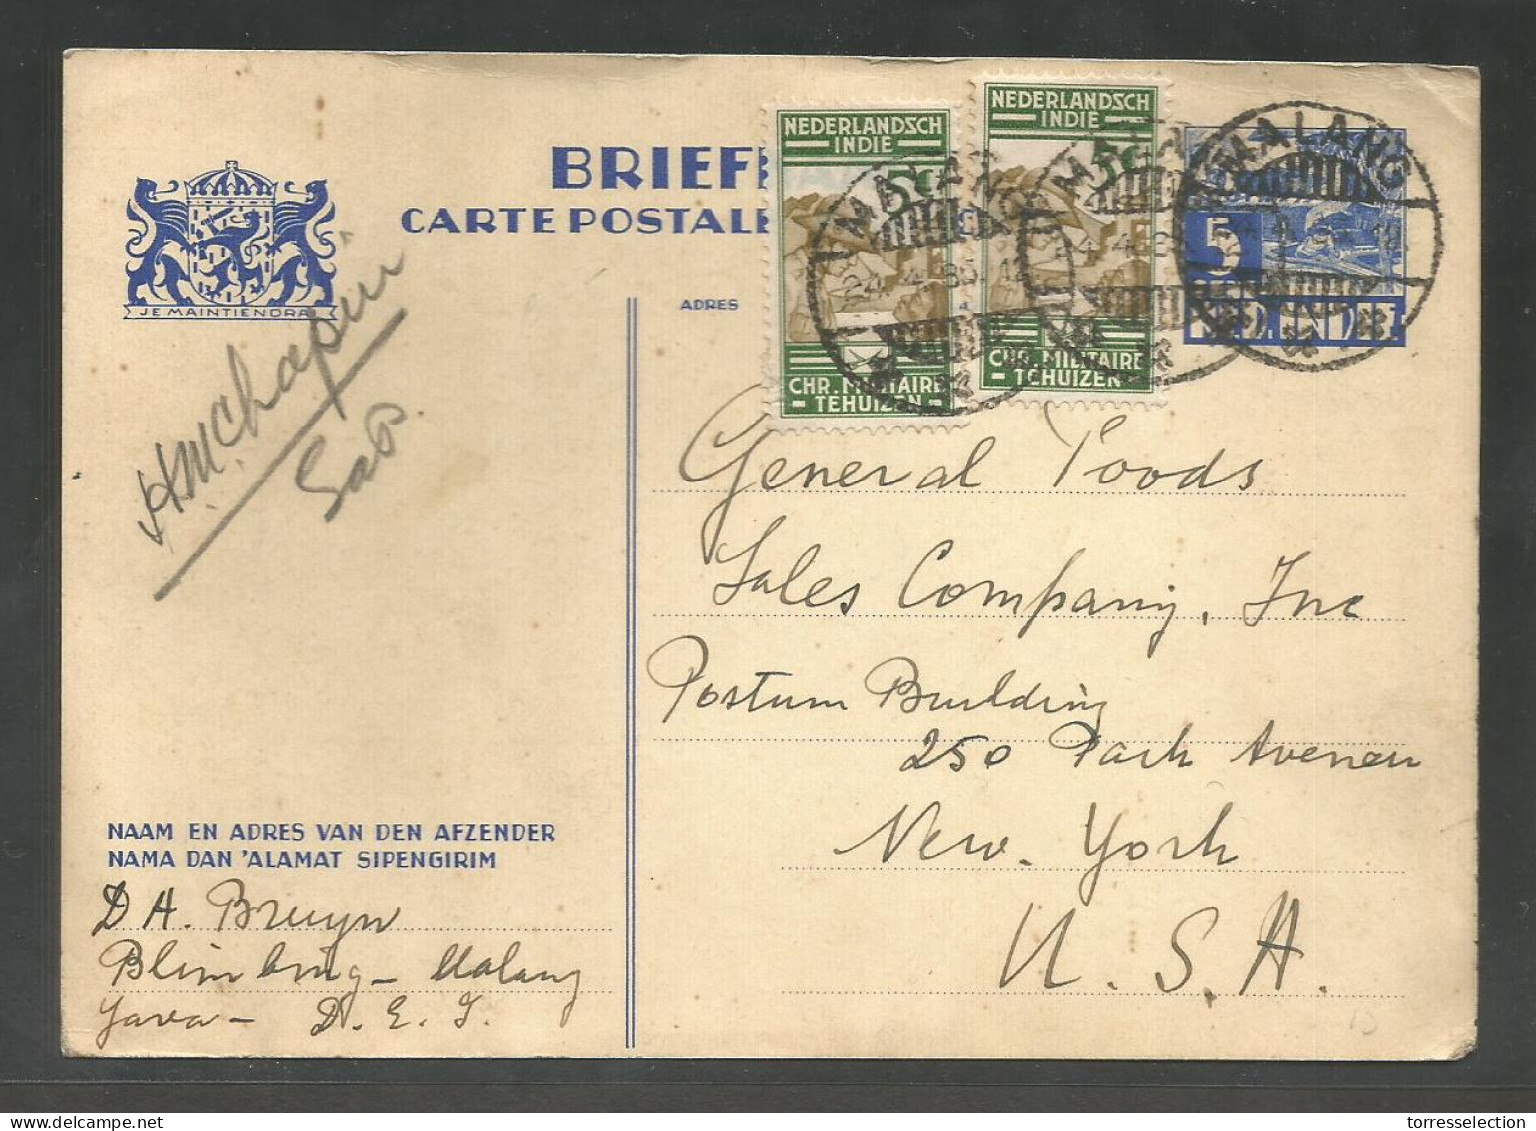 BRIEF
CARTE POSTALE
ADRES
JE MAINTIENDRAI
NEDERLANDSCH
INDIE
5c
CHR. MILITAIRE
- TEHUIZEN -
NEDERLANDSCH
INDIE
5c
CHR. MILITAIRE
- TEHUIZEN -
MALANG
MALANG
5
NED. INDIE
HMChapin
General Foods
Sales Company, Inc
Postum Building
250 Park Avenue
New. York
U. S. A.
NAAM EN ADRES VAN DEN AFZENDER
NAMA DAN 'ALAMAT SIPENGIRIM
D A. Bruyn
Blimbing - Malang
Java - D. E. I.
torresselection